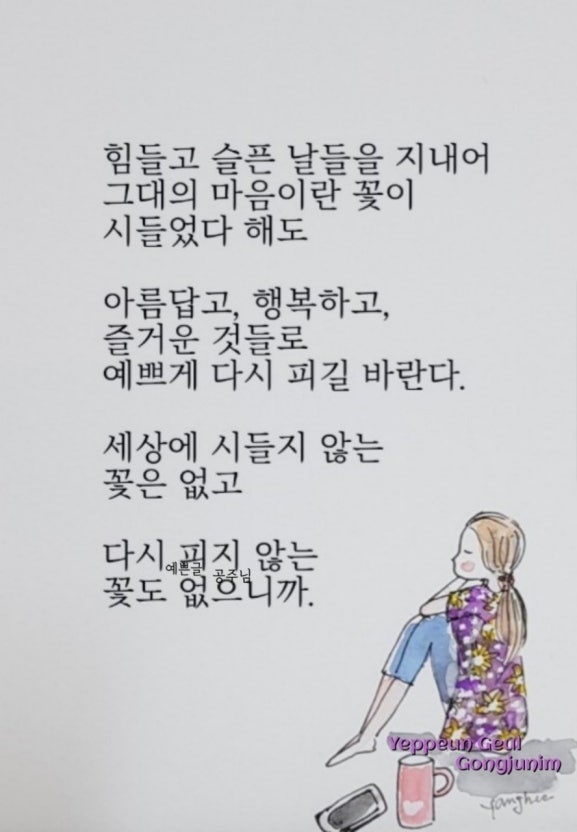 힘들고 슬픈 날들을 지내어
그대의 마음이란 꽃이
시들었다 해도
아름답고, 행복하고,
즐거운 것들로
예쁘게 다시 피길 바란다.
세상에 시들지 않는
꽃은 없고
다시 피지 않는
예쁜글 공주님
꽃도 없으니까.
Yeppeun Geul
Gongjunim